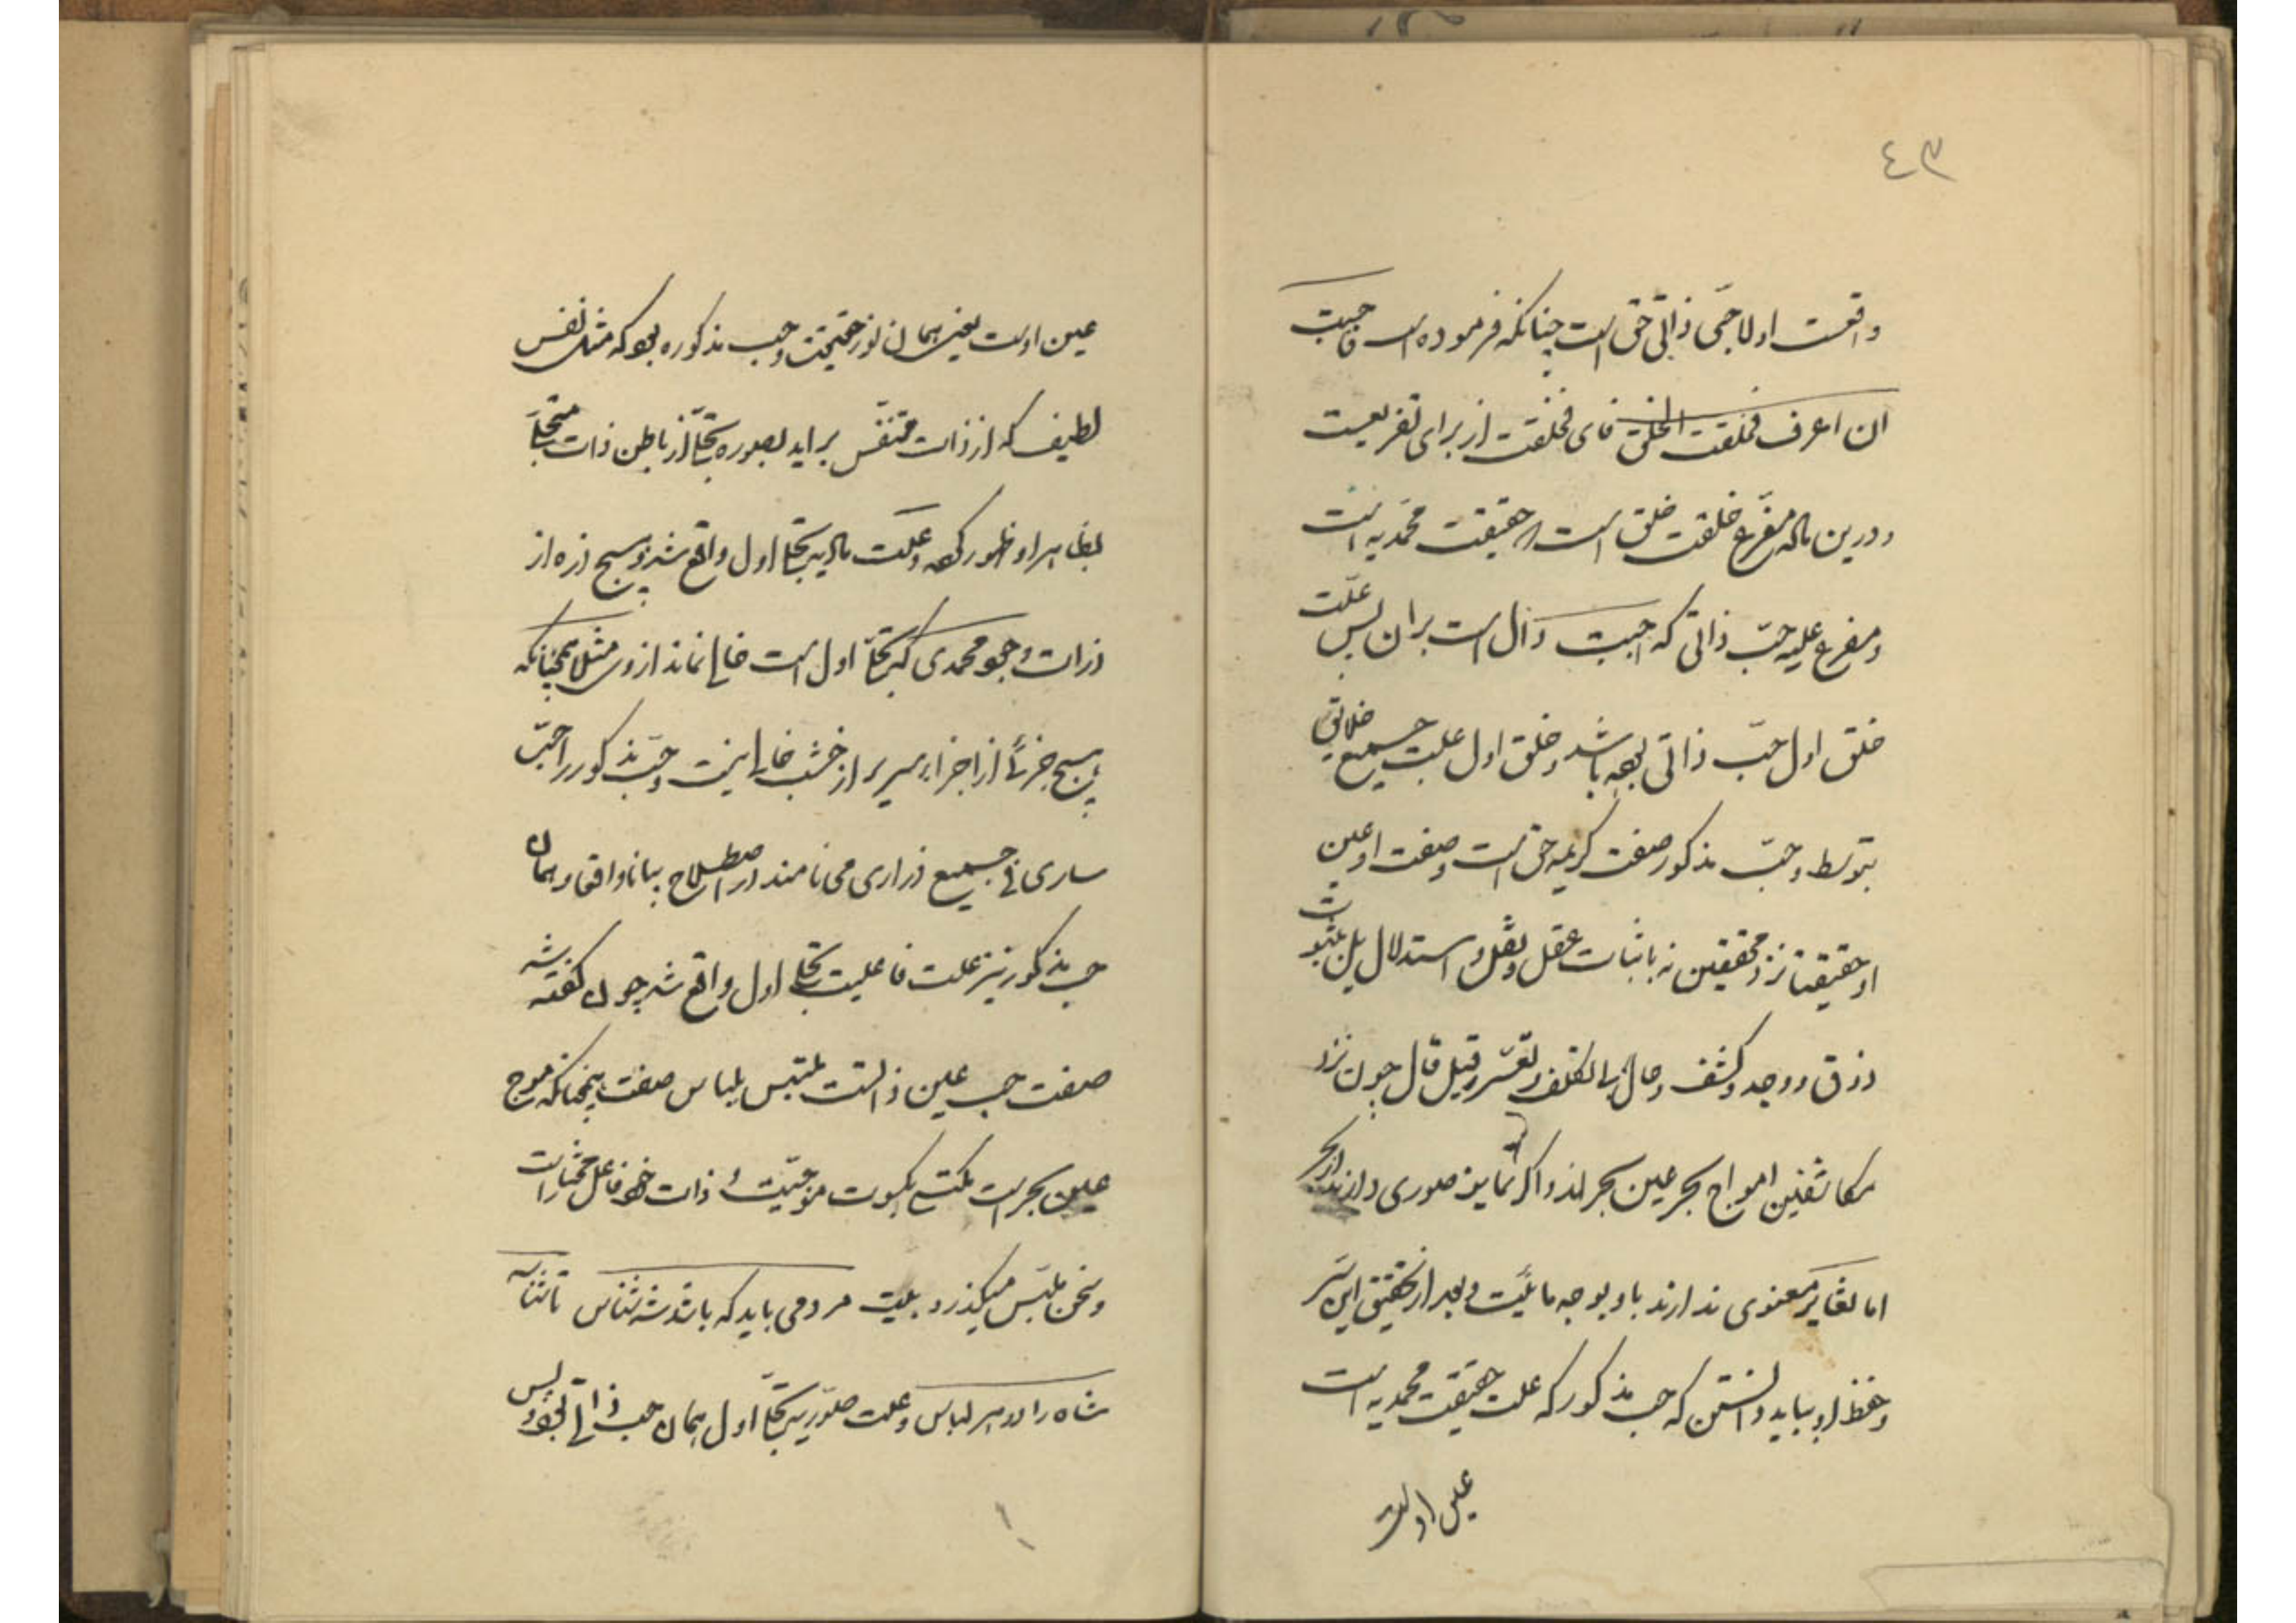 ٤٣
واقعست اولا حبّی ذاتی حق است چنانکه فرموده است فاحببت
ان اعرف فخلقت الخلق فای فخلقت از برای تفریعیست
ودرین ماله مفرّع خلقت خلق است و حقیقت محمّدیه است
ومفرع علیه حبّ ذاتی که احببت دال است بران پس علّت
خلق اول حبّ ذاتی بوده باشد وخلق اول علت جمیع خلایق
بتوسط وحبّ مذکور صفت کریمه حق است وصفت او عین
او حقیقتا نزد محققین نه باثبات عقل ونقل واستدلال بل بثبوت
ذوق ووجد وکشف وحال بلا تکلف وتعسّر وقیل قال چون نزد
مکاشفین امواج بحر عین بحر اند واکر تمایز صوری دارند از بحر
اما تغایر معنوی ندارند باو بوجه مائیّت وبعد از تحقیق این سر
وحفظ او بباید دانستن که حب مذکور که علت حقیقت محمدیه است
عین اوست
عین اوست یعنی همان نور حقیقت وحب مذکوره بود که مثل نفس
لطیف که از ذات متنفّس براید بصوره تجلّی از باطن ذات متجلّی
بظاهر او ظهور کرده وعلت مادیه تجلی اول واقع شد وهیچ ذره از
ذرات وجود محمدی که تجلّی اول است خالی نماند از وی مثلا همچنانکه
هیچ جزئی از اجزاء سریر از خشب خالی نیست وحبّ مذکور را حبّ
ساری فی جمیع ذراری می نامند در اصطلاح بیانا واقعا وهمان
حب مذکور نیز علت فاعلیت تجلی اول واقع شد چون کفته شد
صفت حب عین ذاتست ملتبس بلباس صفت همچنانکه موج
عین بحر است مکتسی بکسوت موجیّت و ذات خود فاعل مختار است
وسخن ملتبس میکذرد بلیت مردمی باید که باشد شه شناس تا شناسد
شاه را در هر لباس وعلت صوّریه تجلّی اول همان حب ذاتی بود پس